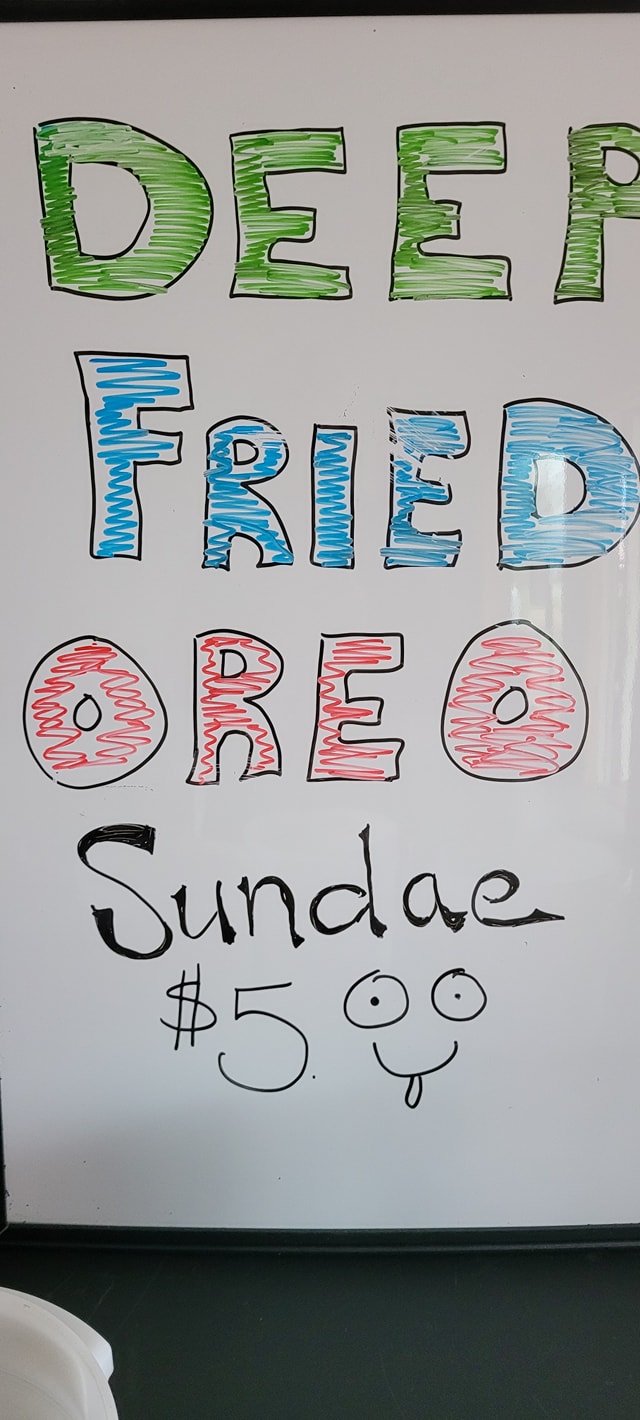 DEEP
FRIED
OREO
Sundae
$5.00